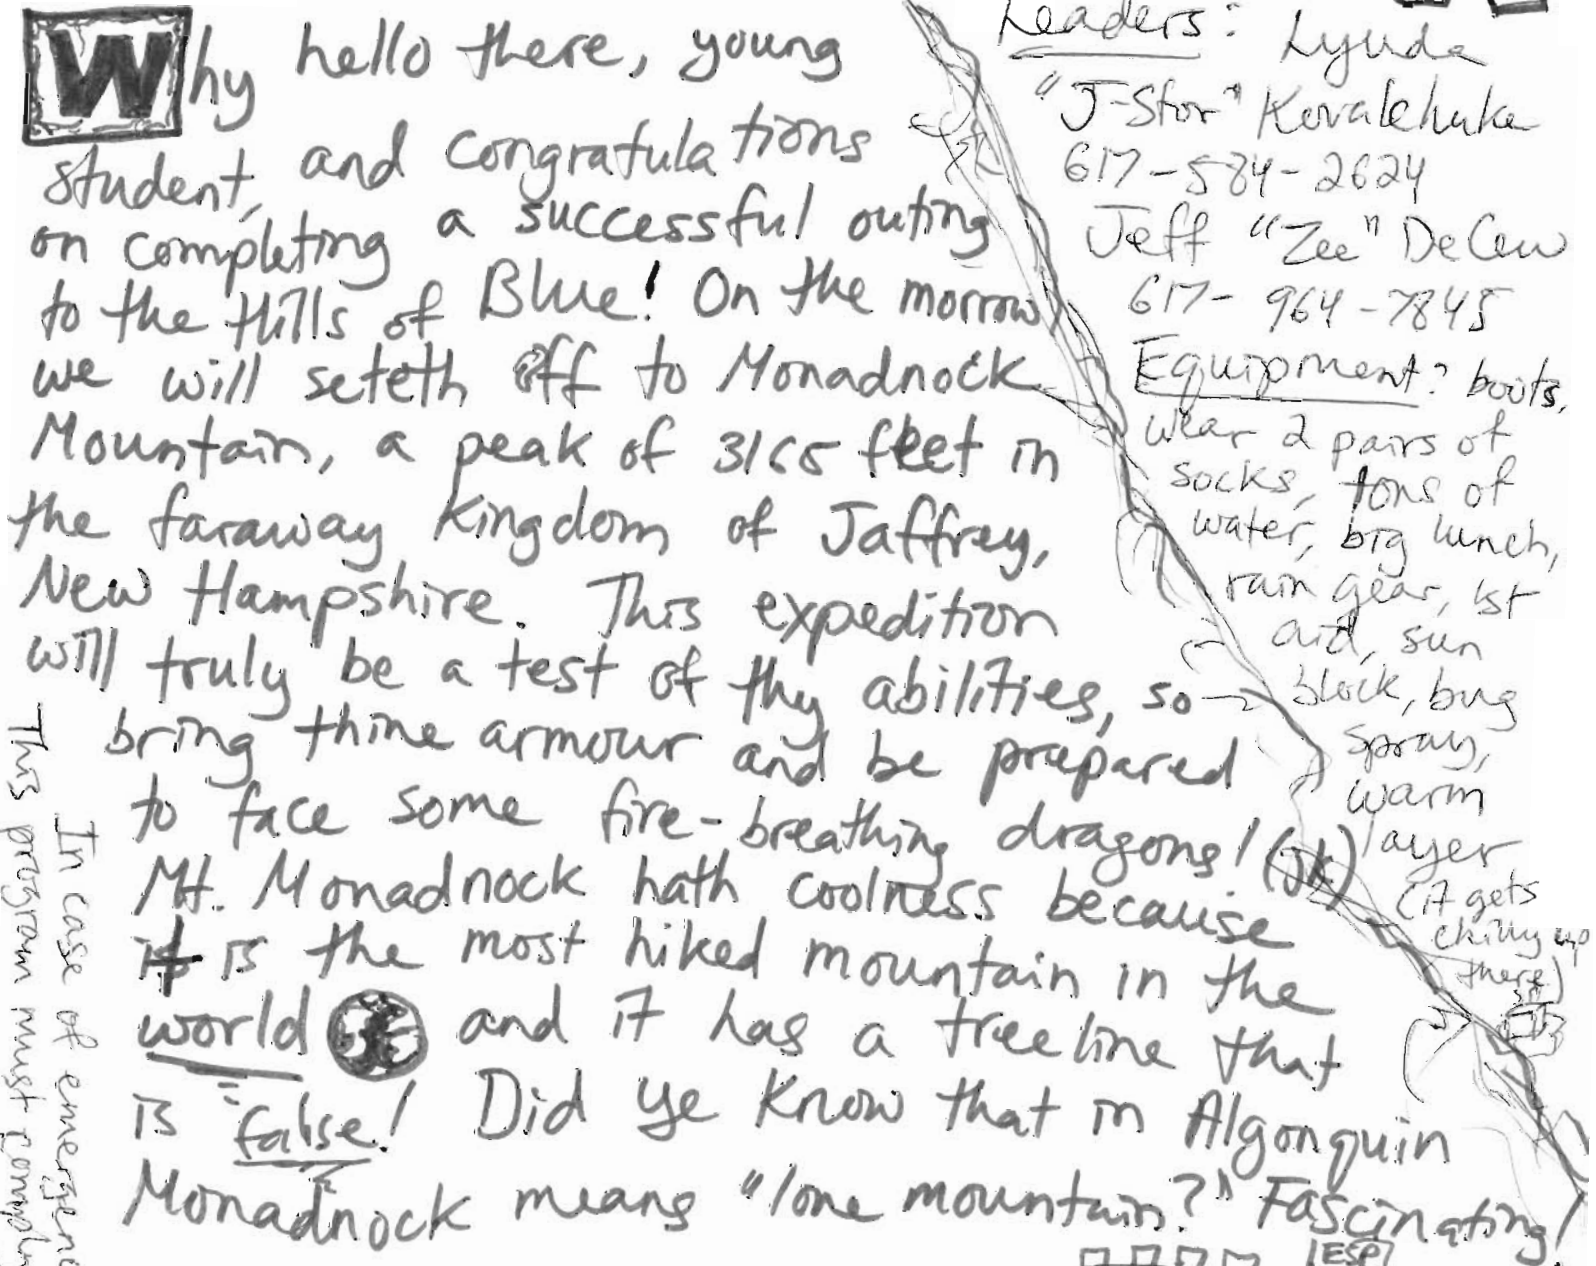 Why hello there, young
student, and congratulations
on completing a successful outing
to the Hills of Blue! On the morrow
we will seteth off to Monadnock
Mountain, a peak of 3165 feet in
the faraway kingdom of Jaffrey,
New Hampshire. This expedition
will truly be a test of thy abilities, so
bring thine armour and be prepared
to face some fire-breathing dragons! (JK)
Mt. Monadnock hath coolness because
it is the most hiked mountain in the
world and it has a treeline that
is false! Did ye know that in Algonquin
Monadnock means "lone mountain?" Fascinating!
Leaders: Lynda
"J-Stor" Kovalchuke
617-584-2624
Jeff "Zee" DeCew
617-964-7845
Equipment: boots,
wear 2 pairs of
socks, tons of
water, big lunch,
rain gear, 1st
aid, sun
block, bug
spray,
warm
layer
(it gets
chilly up
there)
In case of
This program must